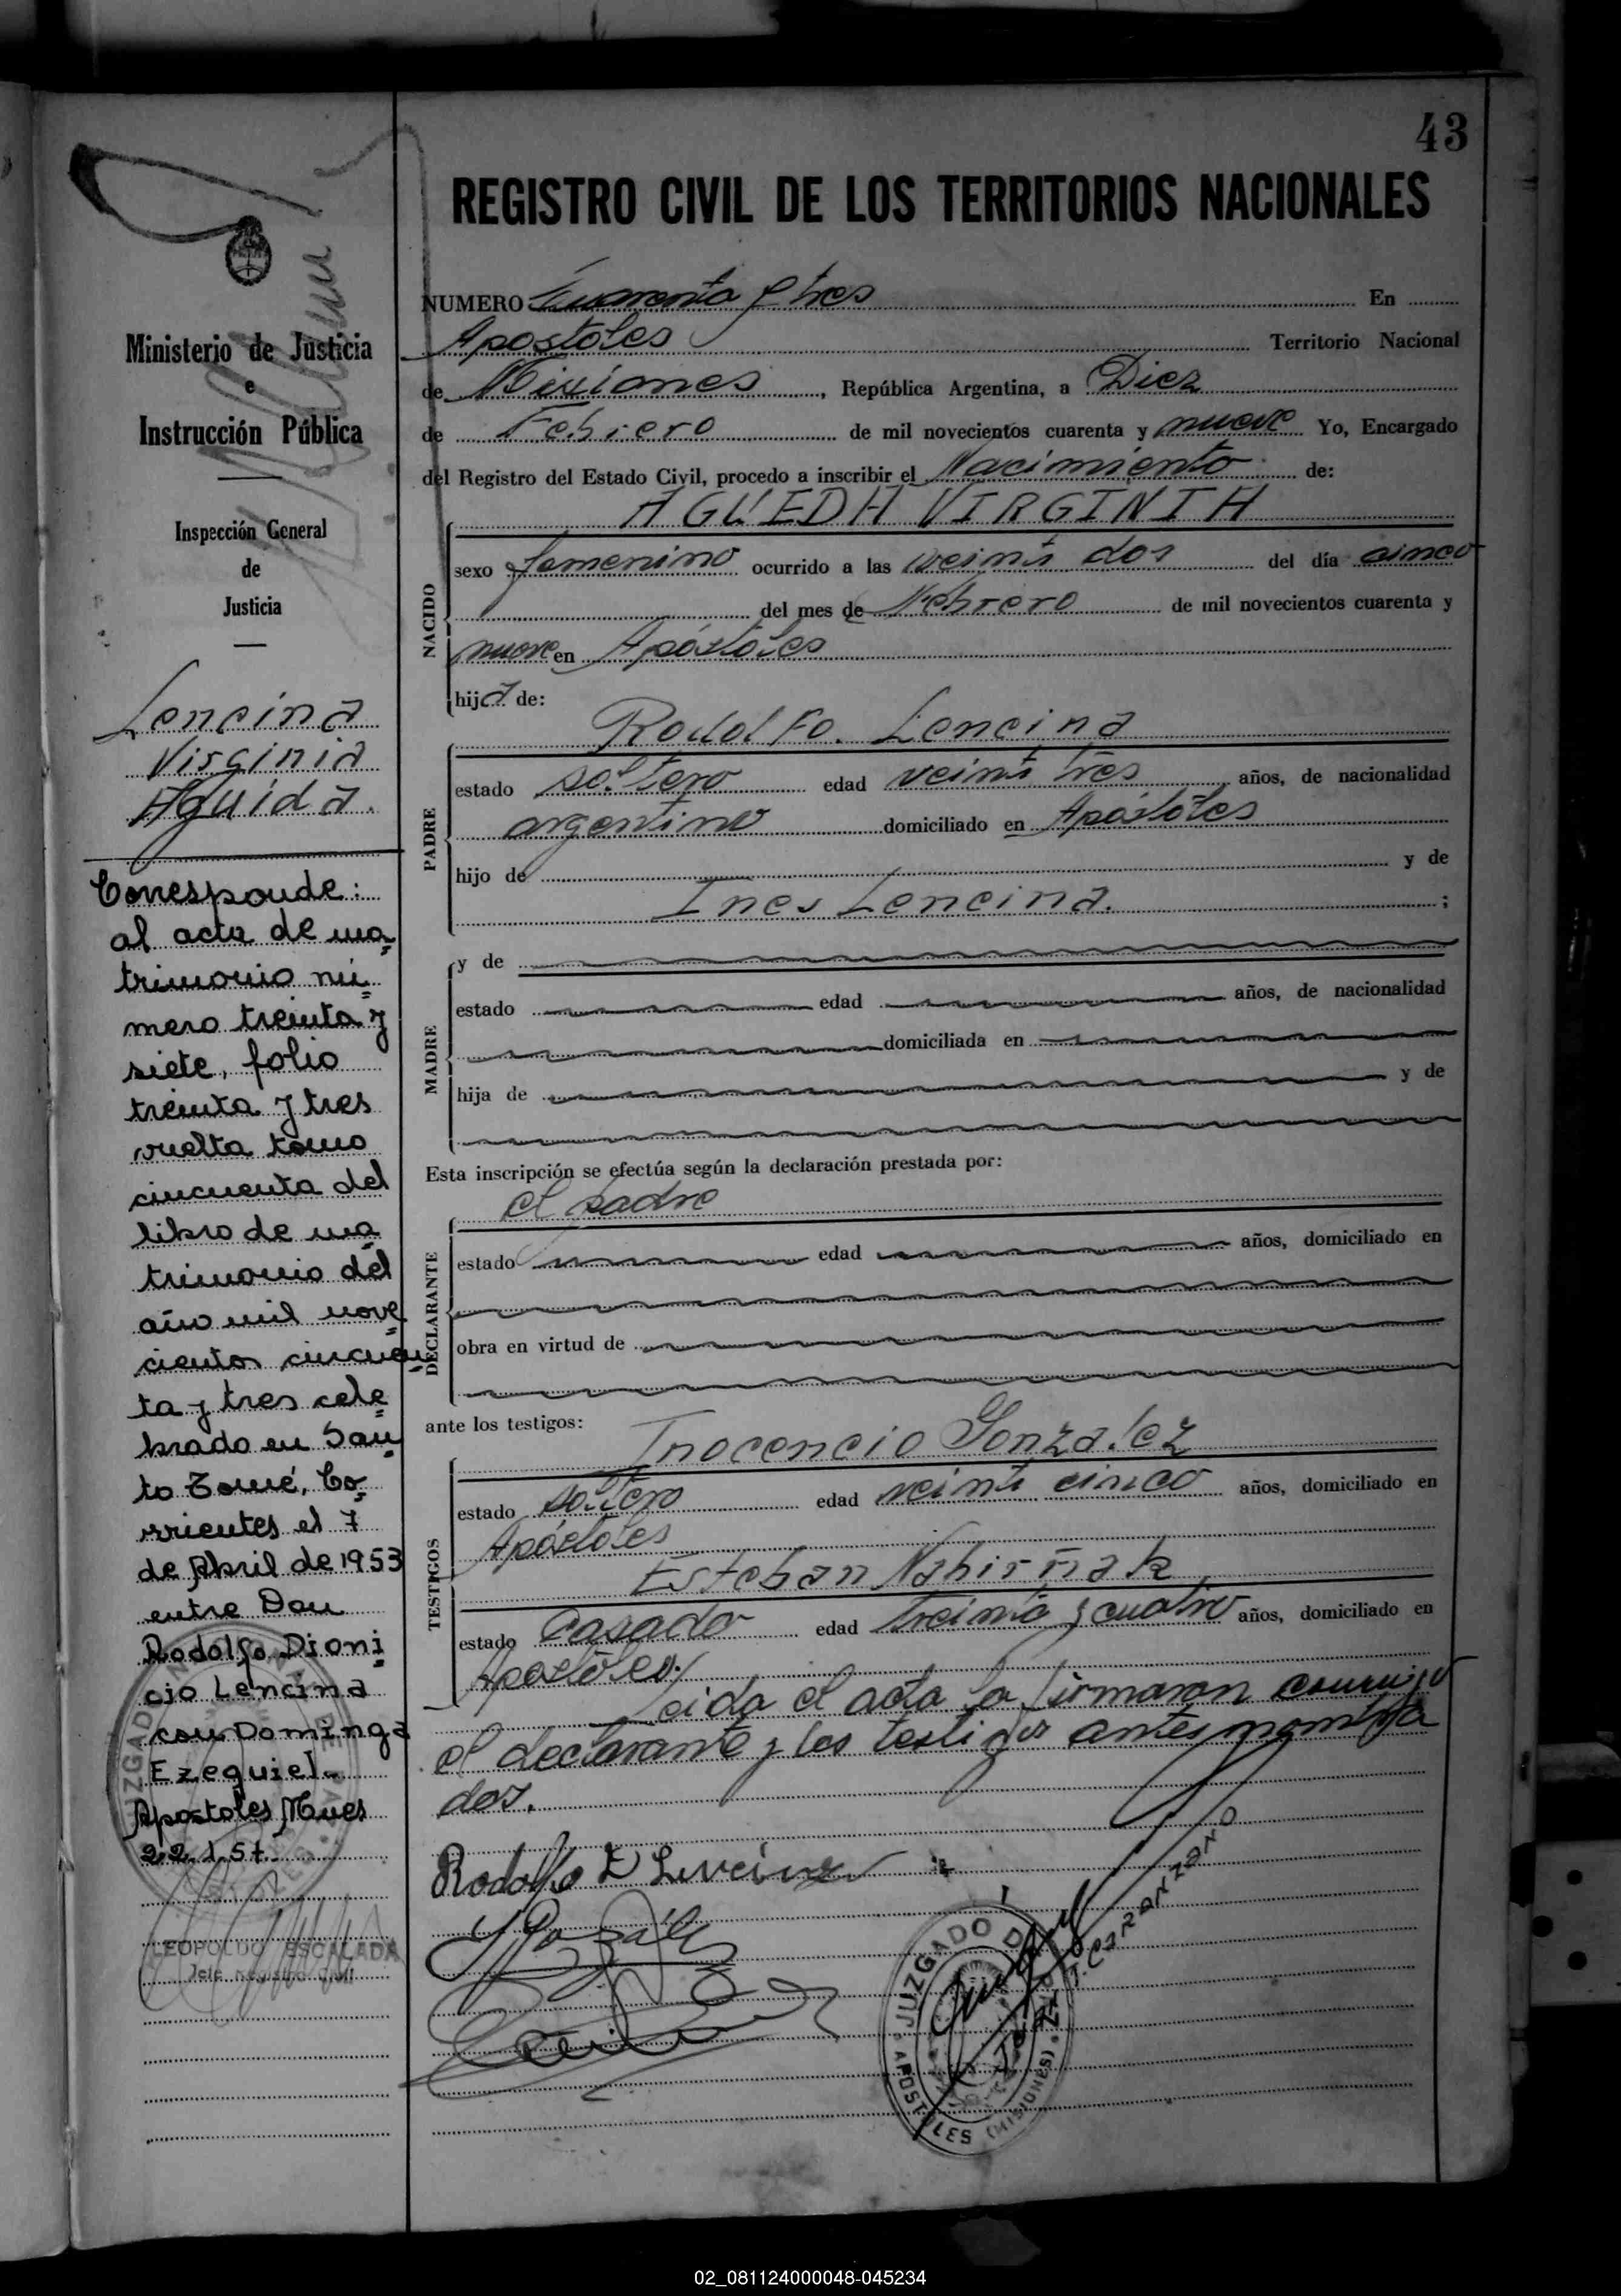 43
REGISTRO CIVIL DE LOS TERRITORIOS NACIONALES
NUMERO Cuarenta y tres En
Apostoles Territorio Nacional
de Misiones, República Argentina, a Diez
de Febrero de mil novecientos cuarenta y nueve Yo, Encargado
del Registro del Estado Civil, procedo a inscribir el Nacimiento de:
AGUEDA VIRGINIA
NACIDO
sexo femenino ocurrido a las veinti dos del día cinco
del mes de Febrero de mil novecientos cuarenta y
nueve en Apóstoles
hija de:
Rodolfo. Lencina
PADRE
estado soltero edad veinti tres años, de nacionalidad
argentino domiciliado en Apóstoles
hijo de y de
Ines Lencina. ;
MADRE
y de
estado edad años, de nacionalidad
domiciliada en
hija de y de
Esta inscripción se efectúa según la declaración prestada por:
el padre
DECLARANTE
estado edad años, domiciliado en
obra en virtud de
ante los testigos:
Inocencio Gonzalez
TESTIGOS
estado soltero edad veinti cinco años, domiciliado en
Apóstoles
Esteban Nahirñak
estado Casado edad treinta y cuatro años, domiciliado en
Apostoles./
Leida el acta la firmaron conmigo
el declarante y los testigos antes nombra
dos.
Rodolfo D Lencina
JUZGADO DE PAZ
APOSTOLES (MISIONES)
Ministerio de Justicia
e
Instrucción Pública
Inspección General
de
Justicia
Lencina
Virginia
Aguida.
Corresponde:
al acta de ma
trimonio nú
mero treinta y
siete, folio
treinta y tres
vuelta tomo
cincuenta del
libro de ma
trimonio del
año mil nove
cientos cincuen
ta y tres cele
brado en San
to Tomé, Co
rrientes el 7
de Abril de 1953
entre Don
Rodolfo Dioni
cio Lencina
con Dominga
Ezequiel.
Apostoles Mnes
22.1.57.
LEOPOLDO ESCALADA
Jefe Registro Civil
02_081124000048-045234